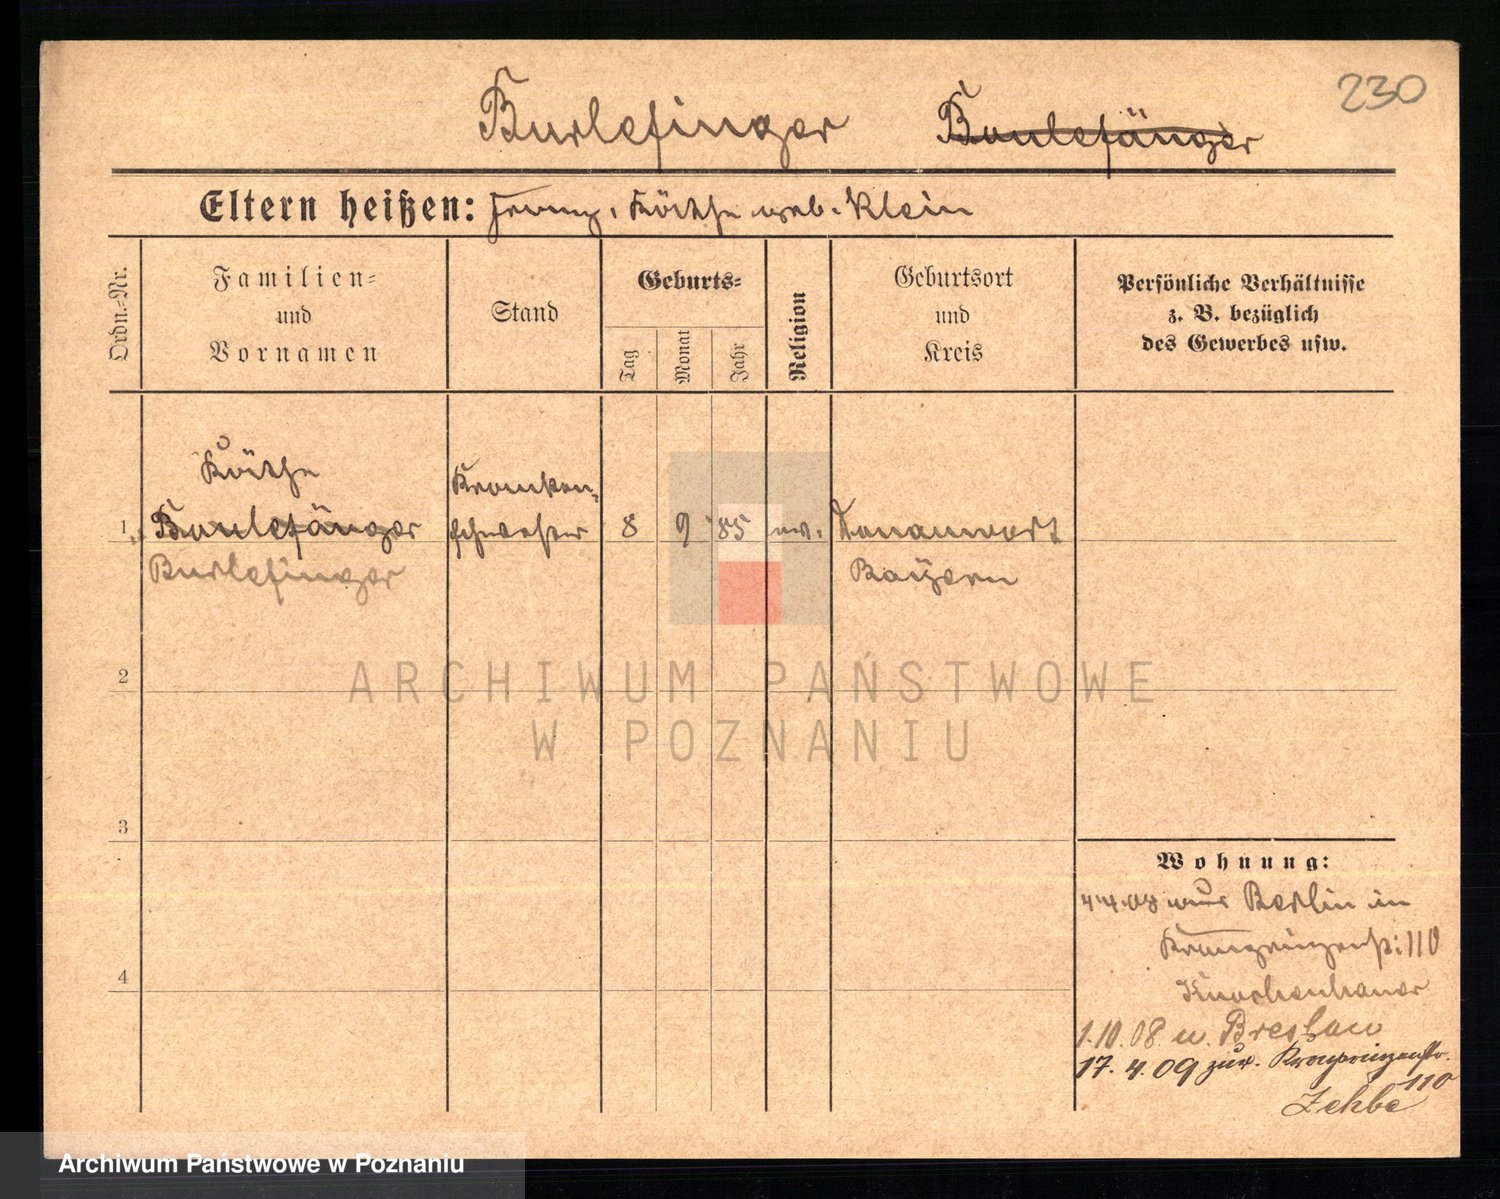 230
Burlefinger Baulefänger
Eltern heißen: Franz, Käthe geb. Klein
Ordn.-Nr.
Familien-
und
Vornamen
Stand
Geburts-
Tag
Monat
Jahr
Religion
Geburtsort
und
Kreis
Persönliche Verhältnisse
z. B. bezüglich
des Gewerbes usw.
Käthe
1 Baulefänger
Burlefinger
Kranken-
schwester
8 9 85 ev.
Donauwört
Bayern
2
3
4
Wohnung:
Berlin in
Kronprinzenst: 110
1.10.08. n. Breslau
17.4.09 zur. Kronprinzenstr.
110
Zehbe
ARCHIWUM PAŃSTWOWE
W POZNANIU
Archiwum Państwowe w Poznaniu